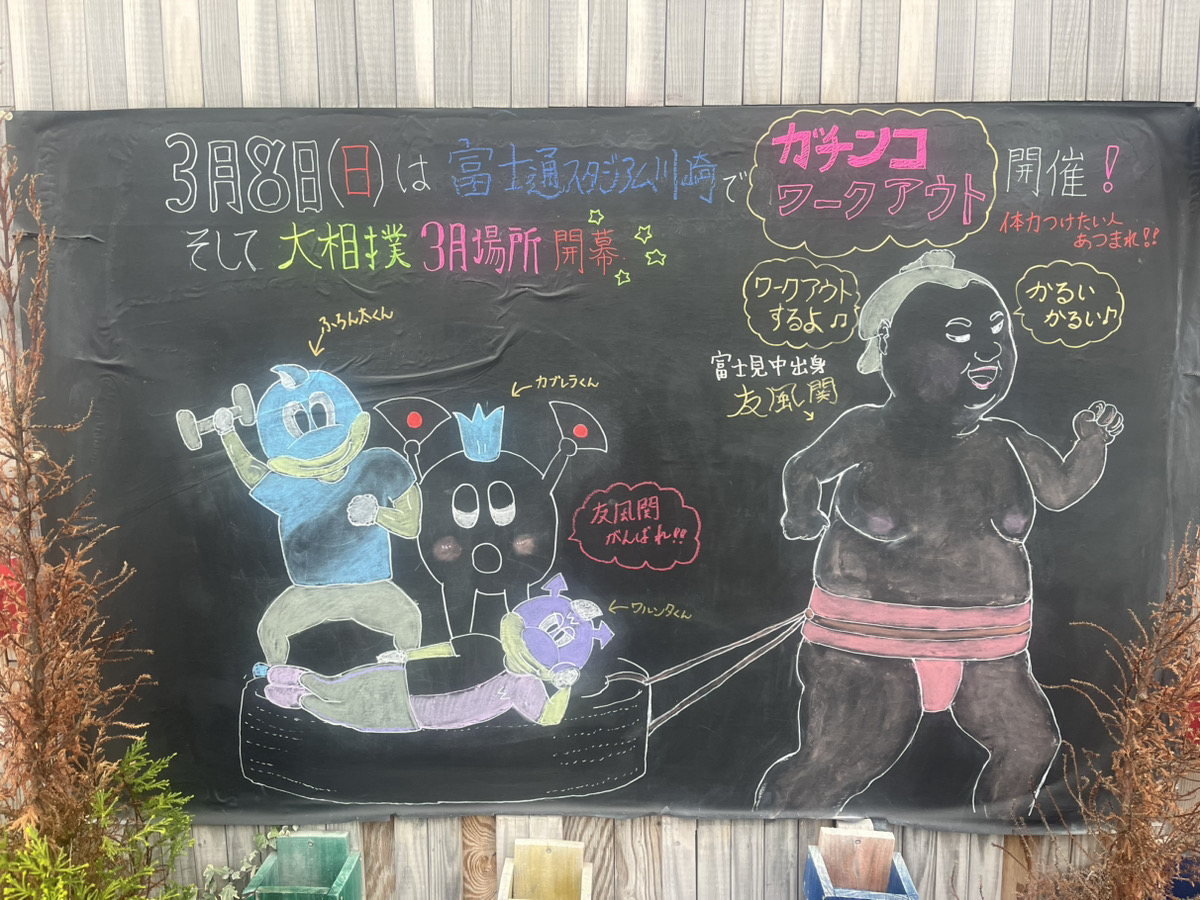 3月8日(日)は 富士通スタジアム川崎で ガチンコ ワークアウト 開催!
体力つけたい人
あつまれ!!
そして 大相撲 3月場所 開幕
ワークアウト
するよ♫
かるい
かるい♪
富士見中出身
友風関
ふろん太くん
カブレラくん
友風関
がんばれ!!
ワルンタくん